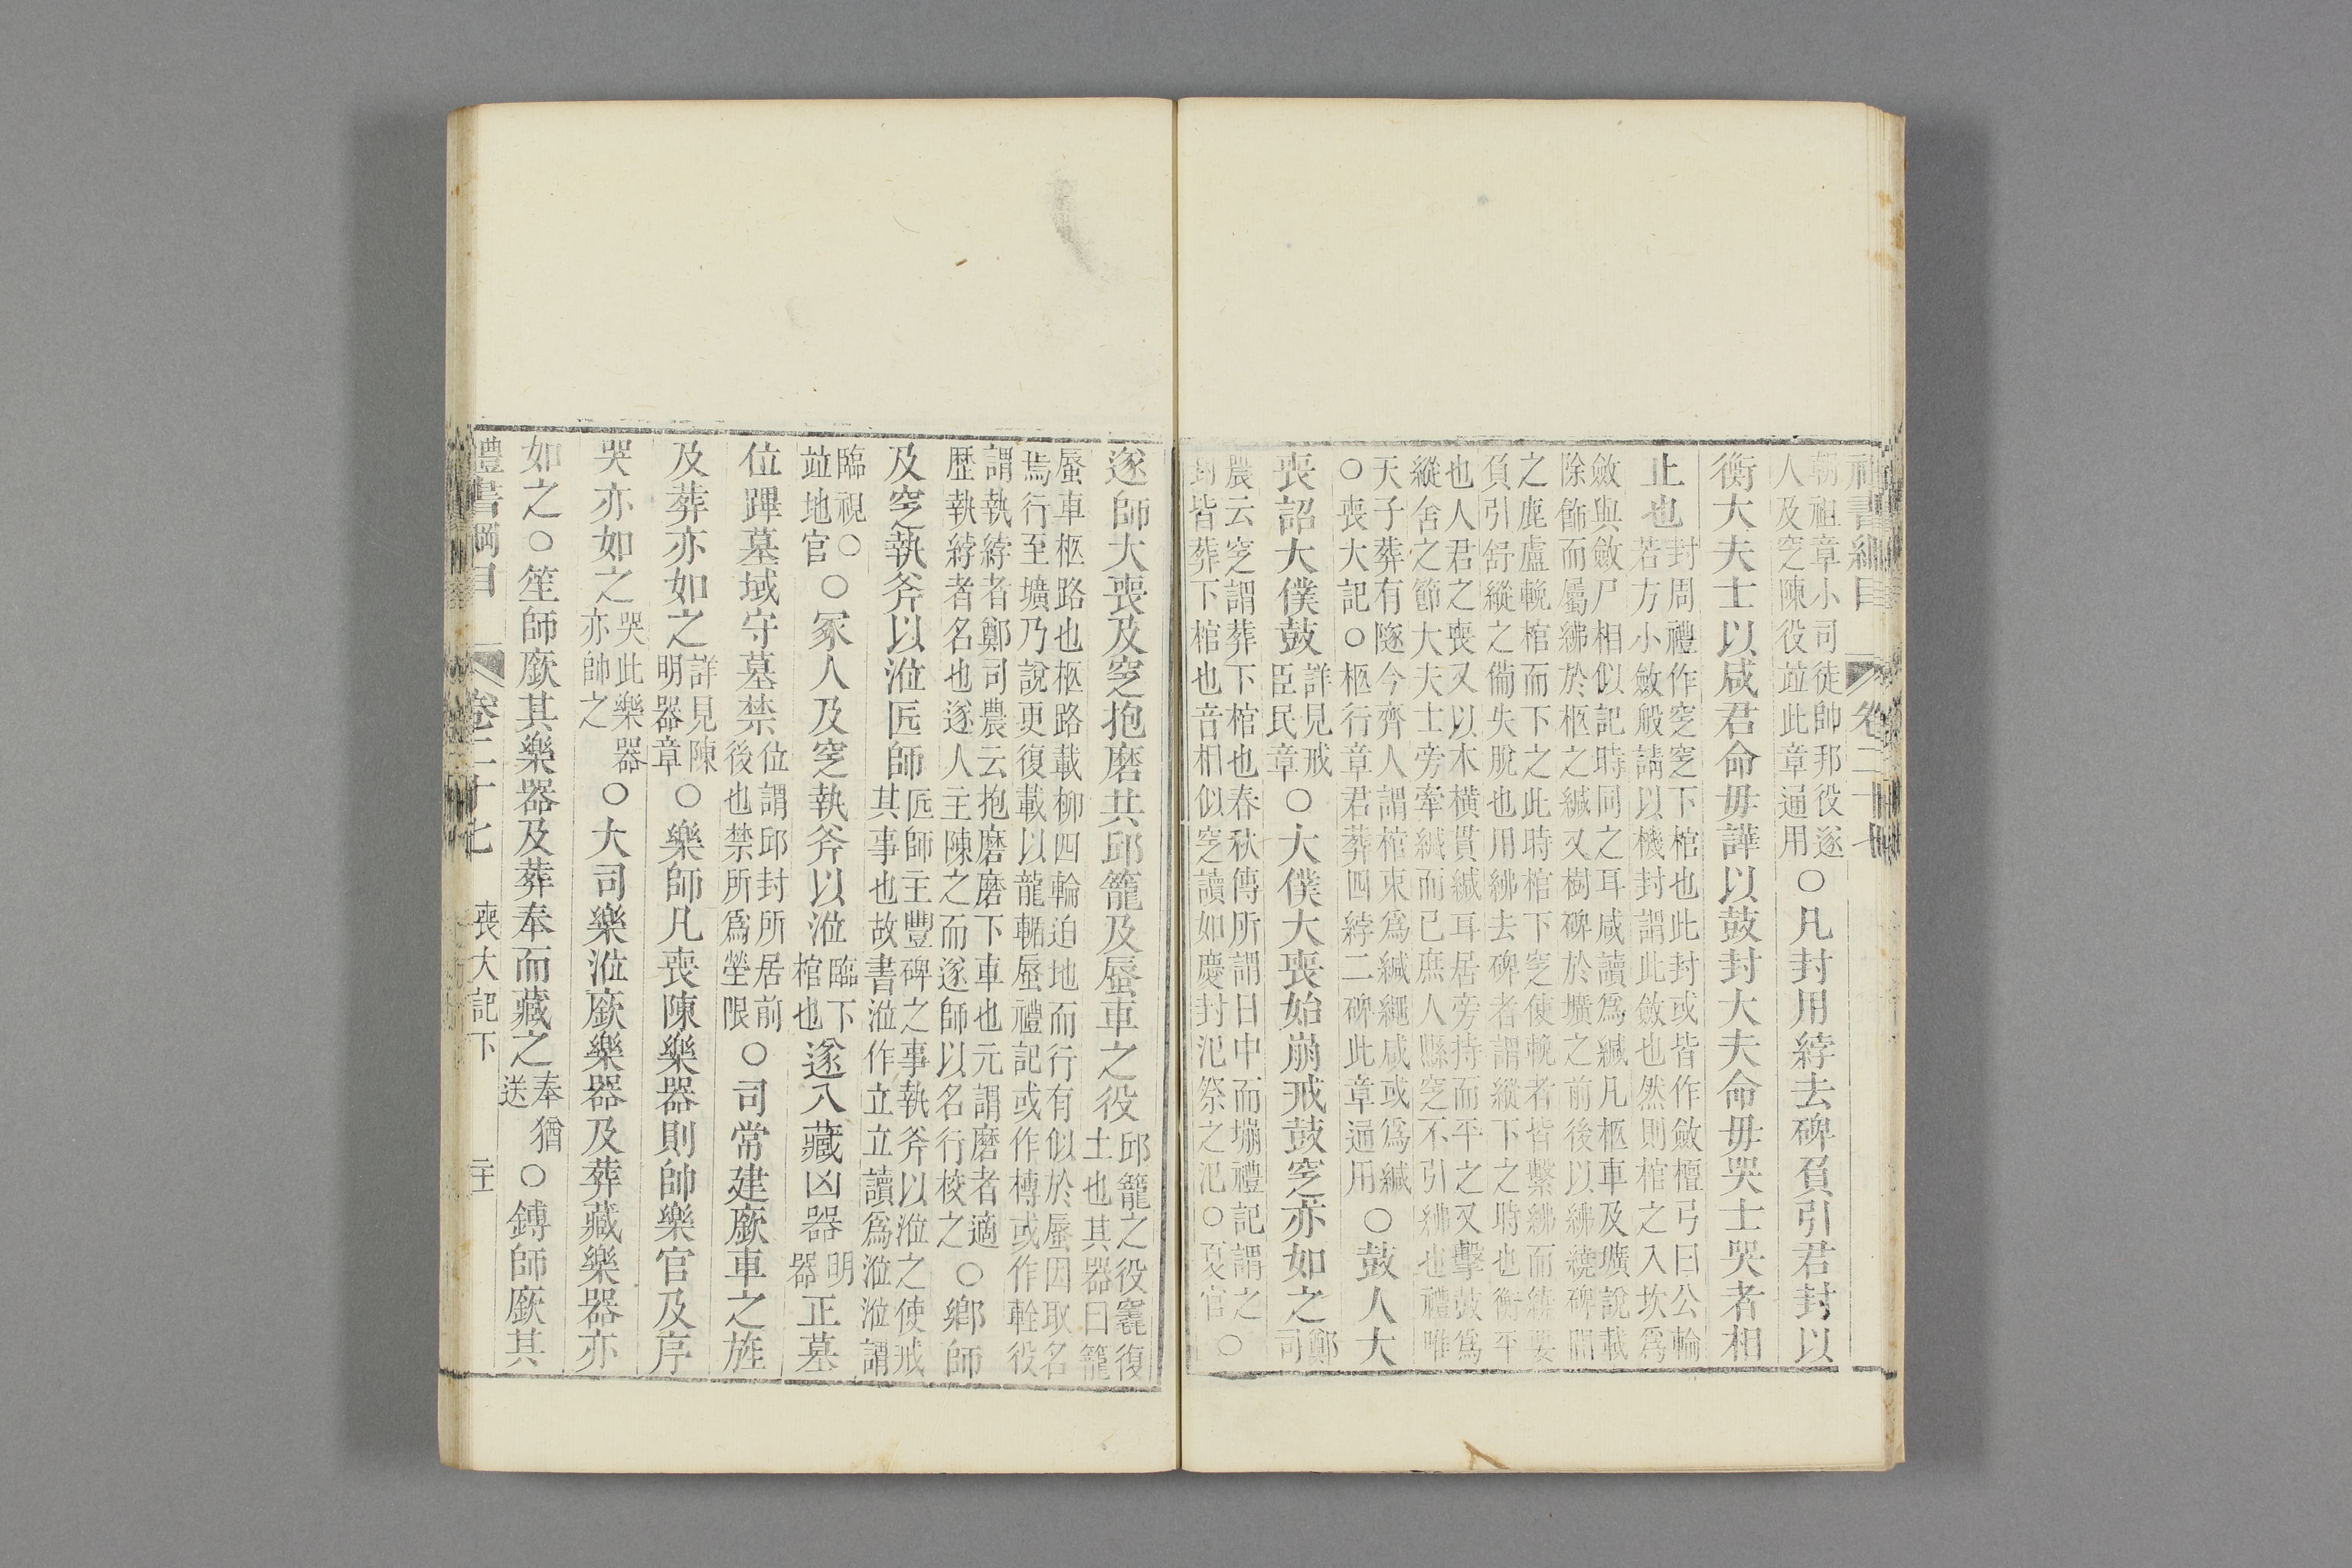 禮書綱目 卷二十七
朝祖章小司徒帥邦役遂
人及窆陳役竝此章通用
○凡封用綍去碑負引君封以
衡大夫士以咸君命毋譁以鼓封大夫命毋哭士哭者相
止也
封周禮作窆窆下棺也此封或皆作斂檀弓曰公輸
若方小斂般請以機封謂此斂也然則棺之入坎爲
斂與斂尸相似記時同之耳咸讀爲緘凡柩車及壙說載
除飾而屬紼於柩之緘又樹碑於壙之前後以紼繞碑間
之鹿盧輓棺而下之此時棺下窆使輓者皆繫紼而繞要
負引舒縱之備失脫也用紼去碑者謂縱下之時也衡平
也人君之喪又以木橫貫緘耳居旁持而平之又擊鼓爲
縱舍之節大夫士旁牽緘而已庶人縣窆不引紼也禮唯
天子葬有隧今齊人謂棺束爲緘繩咸或爲緘
○喪大記○柩行章君葬四綍二碑此章通用
○鼓人大
喪詔大僕鼓
詳見戒
臣民章
○大僕大喪始崩戒鼓窆亦如之
鄭
司
農云窆謂葬下棺也春秋傳所謂日中而塴禮記謂之
封皆葬下棺也音相似窆讀如慶封氾祭之氾○夏官
○
遂師大喪及窆抱磨共邱籠及蜃車之役
邱籠之役竁復
土也其器曰籠
蜃車柩路也柩路載柳四輪迫地而行有似於蜃因取名
焉行至壙乃說更復載以龍輴蜃禮記或作槫或作輇役
謂執綍者鄭司農云抱磨磨下車也元謂磨者適
歷執綍者名也遂人主陳之而遂師以名行校之
○鄉師
及窆執斧以涖匠師
匠師主豐碑之事執斧以涖之使戒
其事也故書涖作立立讀爲涖涖謂
臨視○
竝地官
○冢人及窆執斧以涖
臨下
棺也
遂入藏凶器
明
器
正墓
位蹕墓域守墓禁
位謂邱封所居前
後也禁所爲塋限
○司常建廞車之旌
及葬亦如之
詳見陳
明器章
○樂師凡喪陳樂器則帥樂官及序
哭亦如之
哭此樂器
亦帥之
○大司樂涖廞樂器及葬藏樂器亦
如之○笙師廞其樂器及葬奉而藏之
奉猶
送
○鎛師廞其
禮書綱目 卷二十七 喪大記下